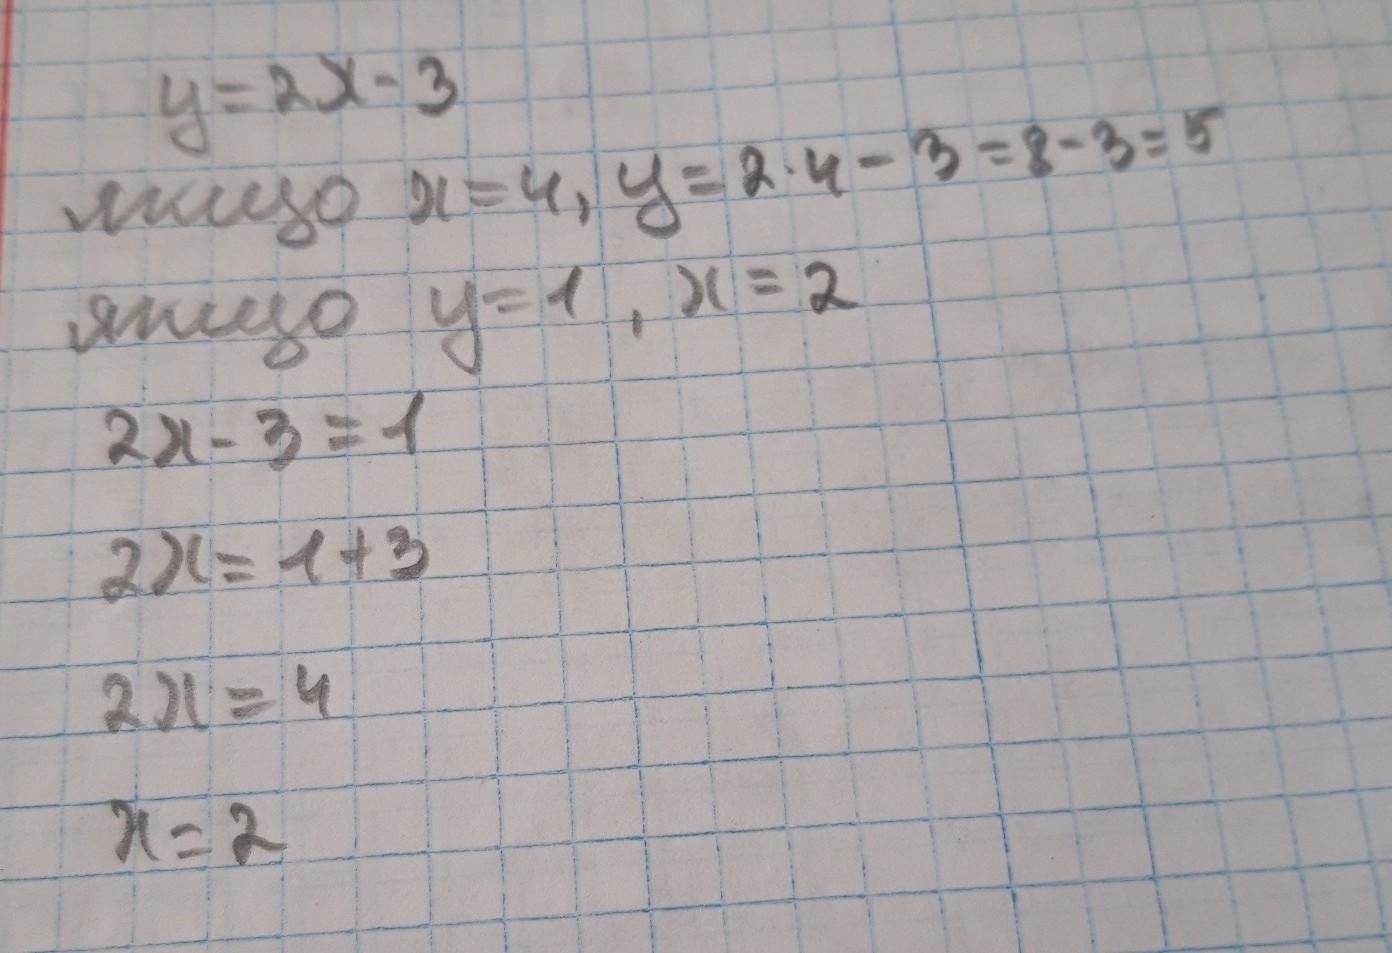 y=2x-3
якщо x=4, y=2·4-3=8-3=5
якщо y=1, x=2
2x-3=1
2x=1+3
2x=4
x=2